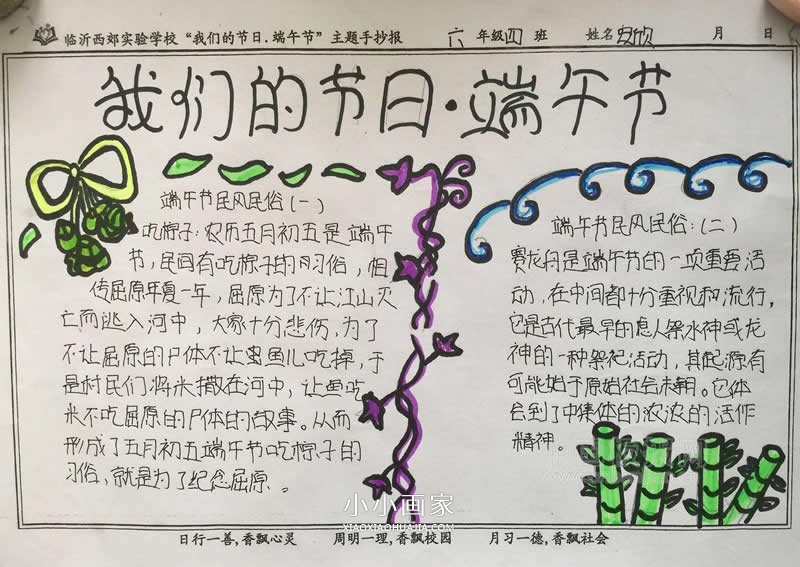 临沂西郊实验学校“我们的节日.端午节”主题手抄报 六 年级四 班 姓名 欣 月 日
我们的节日·端午节
端午节民风民俗(一)
吃粽子:农历五月初五是端午
节,民间有吃粽子的习俗,相
传屈原年夏一年,屈原为了不让江山灭
亡而逃入河中,大家十分悲伤,为了
不让屈原的尸体不让鱼儿吃掉,于
是村民们将米撒在河中,让鱼吃
米不吃屈原的尸体的故事。从而
形成了五月初五端午节吃粽子的
习俗,就是为了纪念屈原。
端午节民风民俗:(二)
赛龙舟是端午节的一项重要活
动,在中间都十分重视和流行,
它是古代最早的 人祭水神或龙
神的一种祭祀活动,其起源有
可能始于原始社会末期。它体
会到了中集体的浓浓的活作
精神。
小小画家
XIAOXIAOHUAJIA.COM
日行一善,香飘心灵 周明一理,香飘校园 月习一德,香飘社会